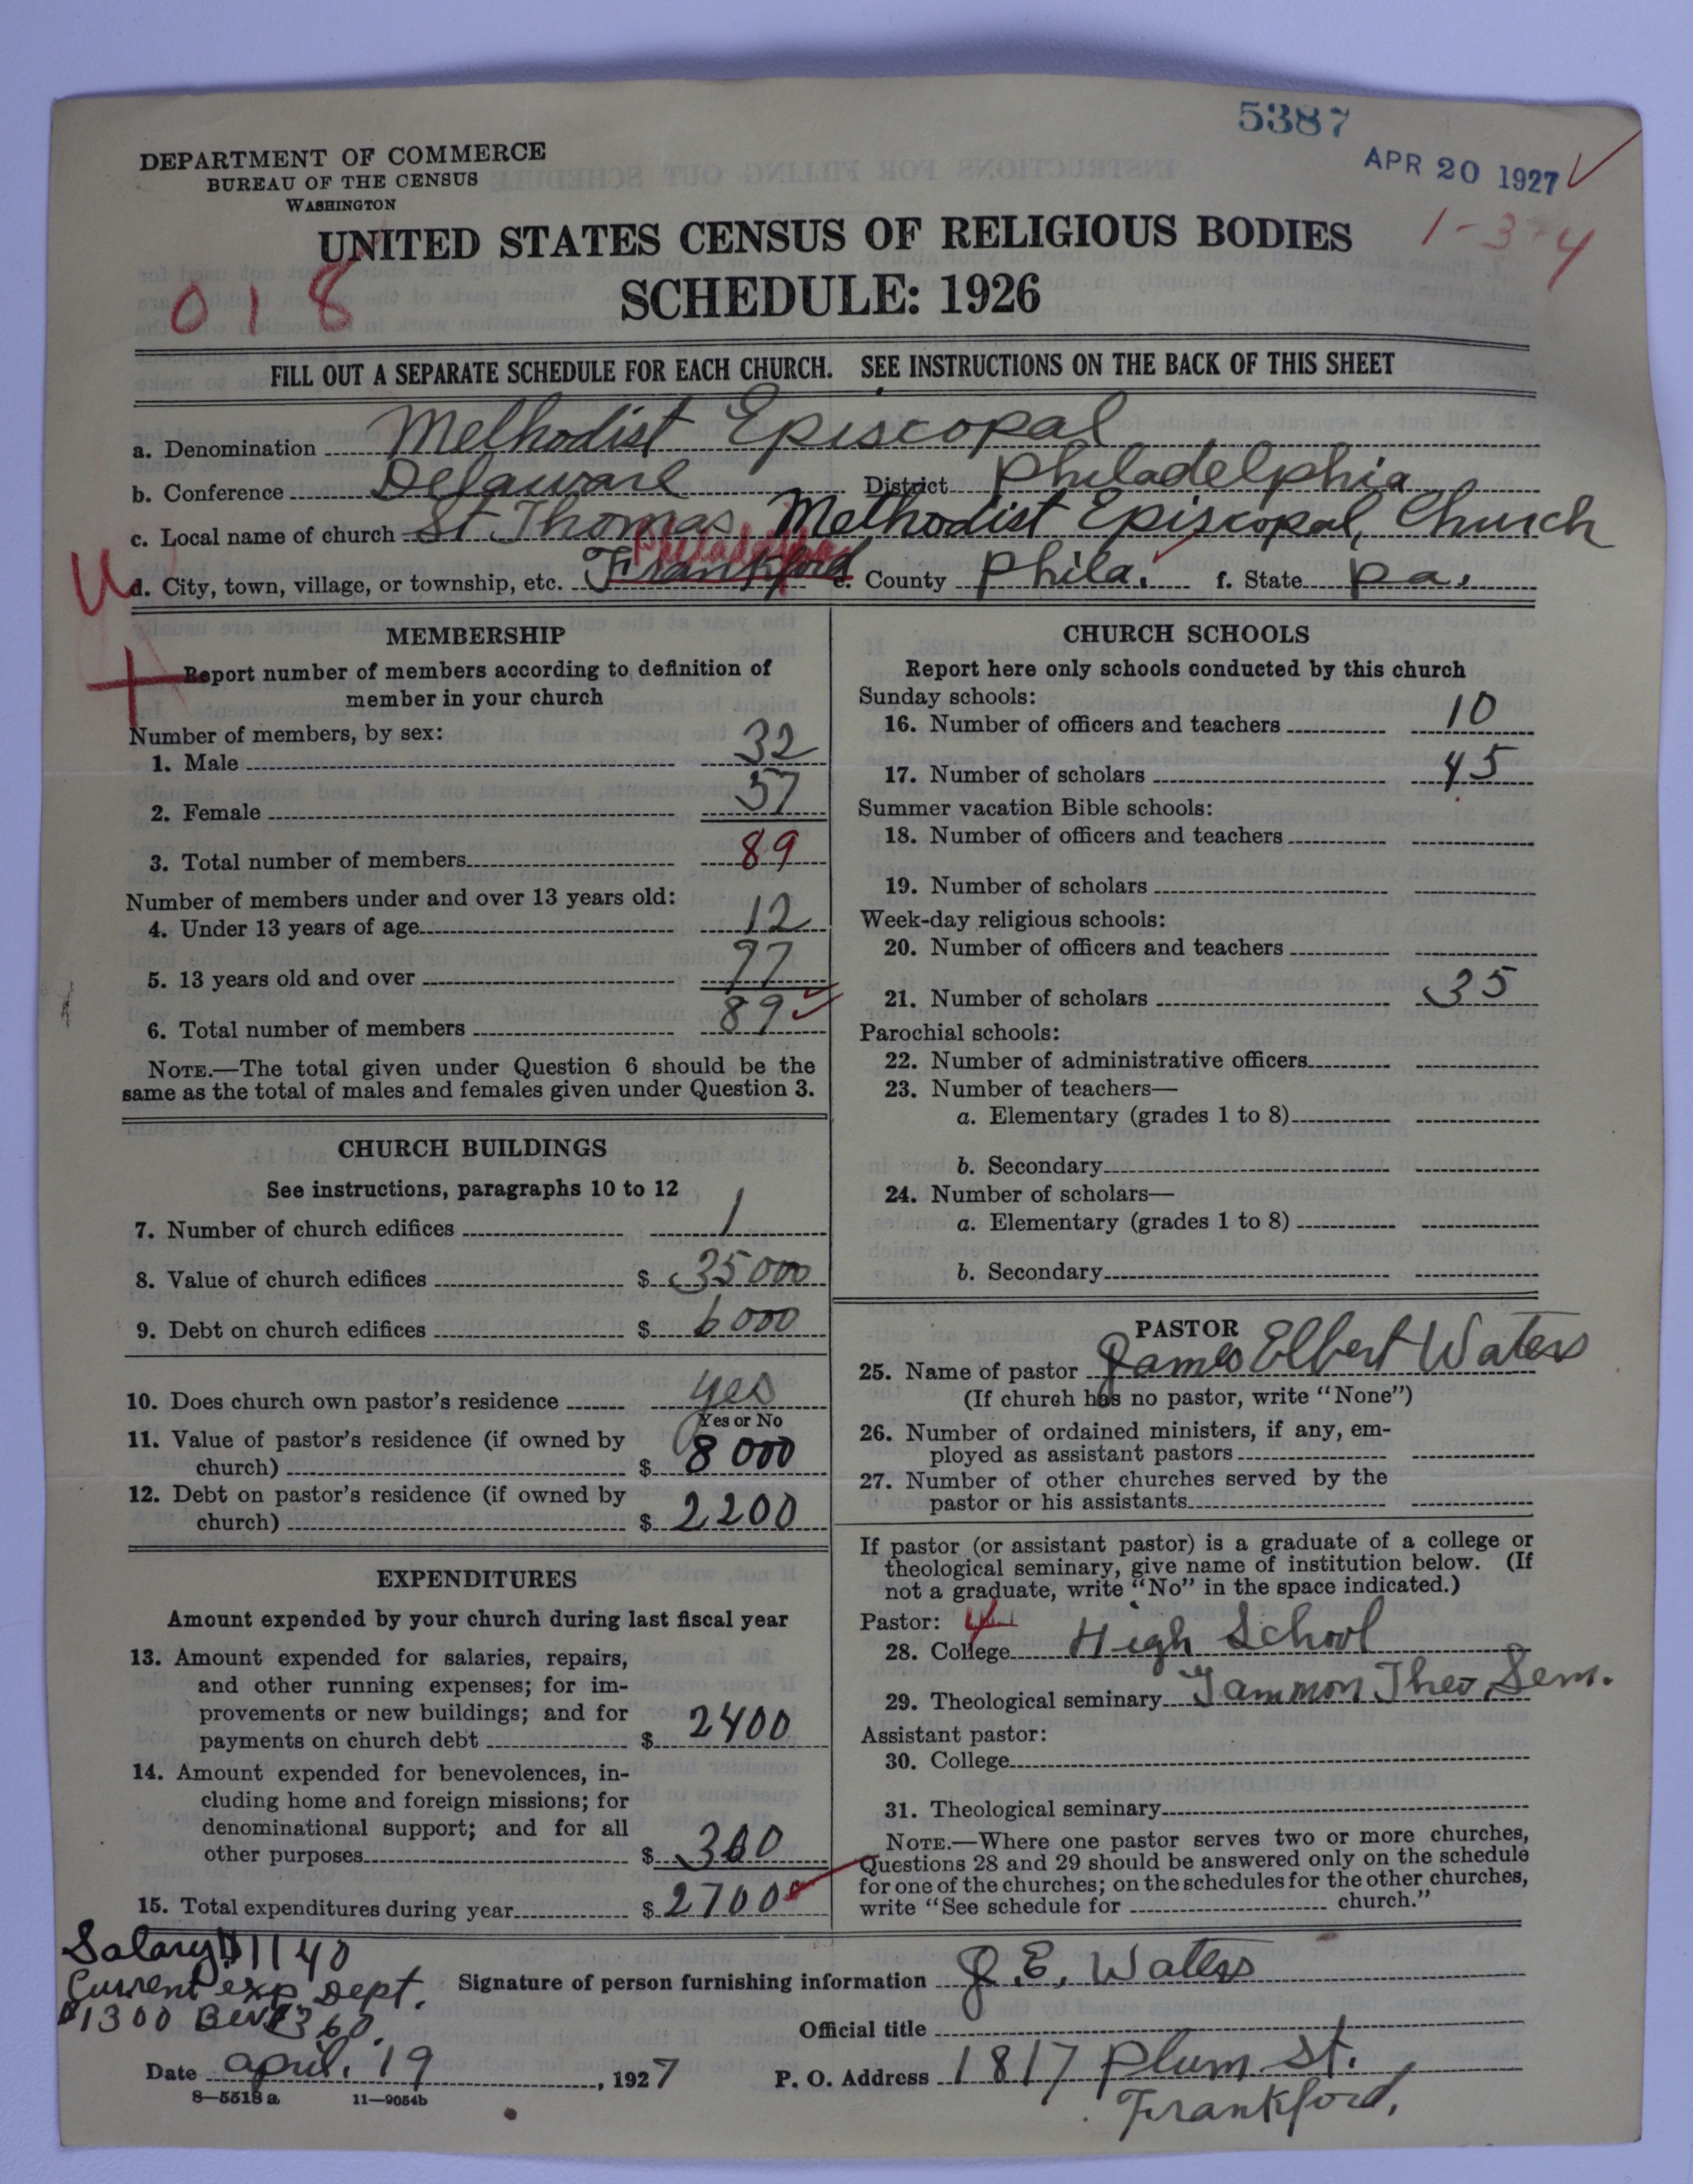 5387
APR 20 1927
DEPARTMENT OF COMMERCE
BUREAU OF THE CENSUS
WASHINGTON
UNITED STATES CENSUS OF RELIGIOUS BODIES
1-3-4
018
SCHEDULE: 1926
FILL OUT A SEPARATE SCHEDULE FOR EACH CHURCH. SEE INSTRUCTIONS ON THE BACK OF THIS SHEET
a. Denomination Methodist Episcopal
b. Conference Delaware District Philadelphia
c. Local name of church St Thomas Methodist Episcopal, Church
Philadelphia
d. City, town, village, or township, etc. Frankford e. County Phila. f. State Pa.
MEMBERSHIP
Report number of members according to definition of
member in your church
Number of members, by sex:
1. Male 32
2. Female 57
3. Total number of members 89
Number of members under and over 13 years old:
4. Under 13 years of age 12
5. 13 years old and over 77
6. Total number of members 89
NOTE.—The total given under Question 6 should be the
same as the total of males and females given under Question 3.
CHURCH BUILDINGS
See instructions, paragraphs 10 to 12
7. Number of church edifices 1
8. Value of church edifices $ 35000
9. Debt on church edifices $ 6000
10. Does church own pastor's residence yes
Yes or No
11. Value of pastor's residence (if owned by
church) $ 8000
12. Debt on pastor's residence (if owned by
church) $ 2200
EXPENDITURES
Amount expended by your church during last fiscal year
13. Amount expended for salaries, repairs,
and other running expenses; for im-
provements or new buildings; and for
payments on church debt $ 2400
14. Amount expended for benevolences, in-
cluding home and foreign missions; for
denominational support; and for all
other purposes $ 300
15. Total expenditures during year $ 2700
CHURCH SCHOOLS
Report here only schools conducted by this church
Sunday schools:
16. Number of officers and teachers 10
17. Number of scholars 45
Summer vacation Bible schools:
18. Number of officers and teachers
19. Number of scholars
Week-day religious schools:
20. Number of officers and teachers
21. Number of scholars 35
Parochial schools:
22. Number of administrative officers
23. Number of teachers—
a. Elementary (grades 1 to 8)
b. Secondary
24. Number of scholars—
a. Elementary (grades 1 to 8)
b. Secondary
PASTOR
25. Name of pastor James Elbert Waters
(If church has no pastor, write "None")
26. Number of ordained ministers, if any, em-
ployed as assistant pastors
27. Number of other churches served by the
pastor or his assistants
If pastor (or assistant pastor) is a graduate of a college or
theological seminary, give name of institution below. (If
not a graduate, write "No" in the space indicated.)
Pastor: 4
28. College High School
29. Theological seminary Gammon Theo, Sem.
Assistant pastor:
30. College
31. Theological seminary
NOTE.—Where one pastor serves two or more churches,
Questions 28 and 29 should be answered only on the schedule
for one of the churches; on the schedules for the other churches,
write "See schedule for church."
Salary $1140
Current exp Dept.
$1300 Bev 360.
Signature of person furnishing information J. E. Waters
Official title
Date april. 19, 1927
P. O. Address 1817 Plum St.
Frankford,
8—5518 a 11—9054b